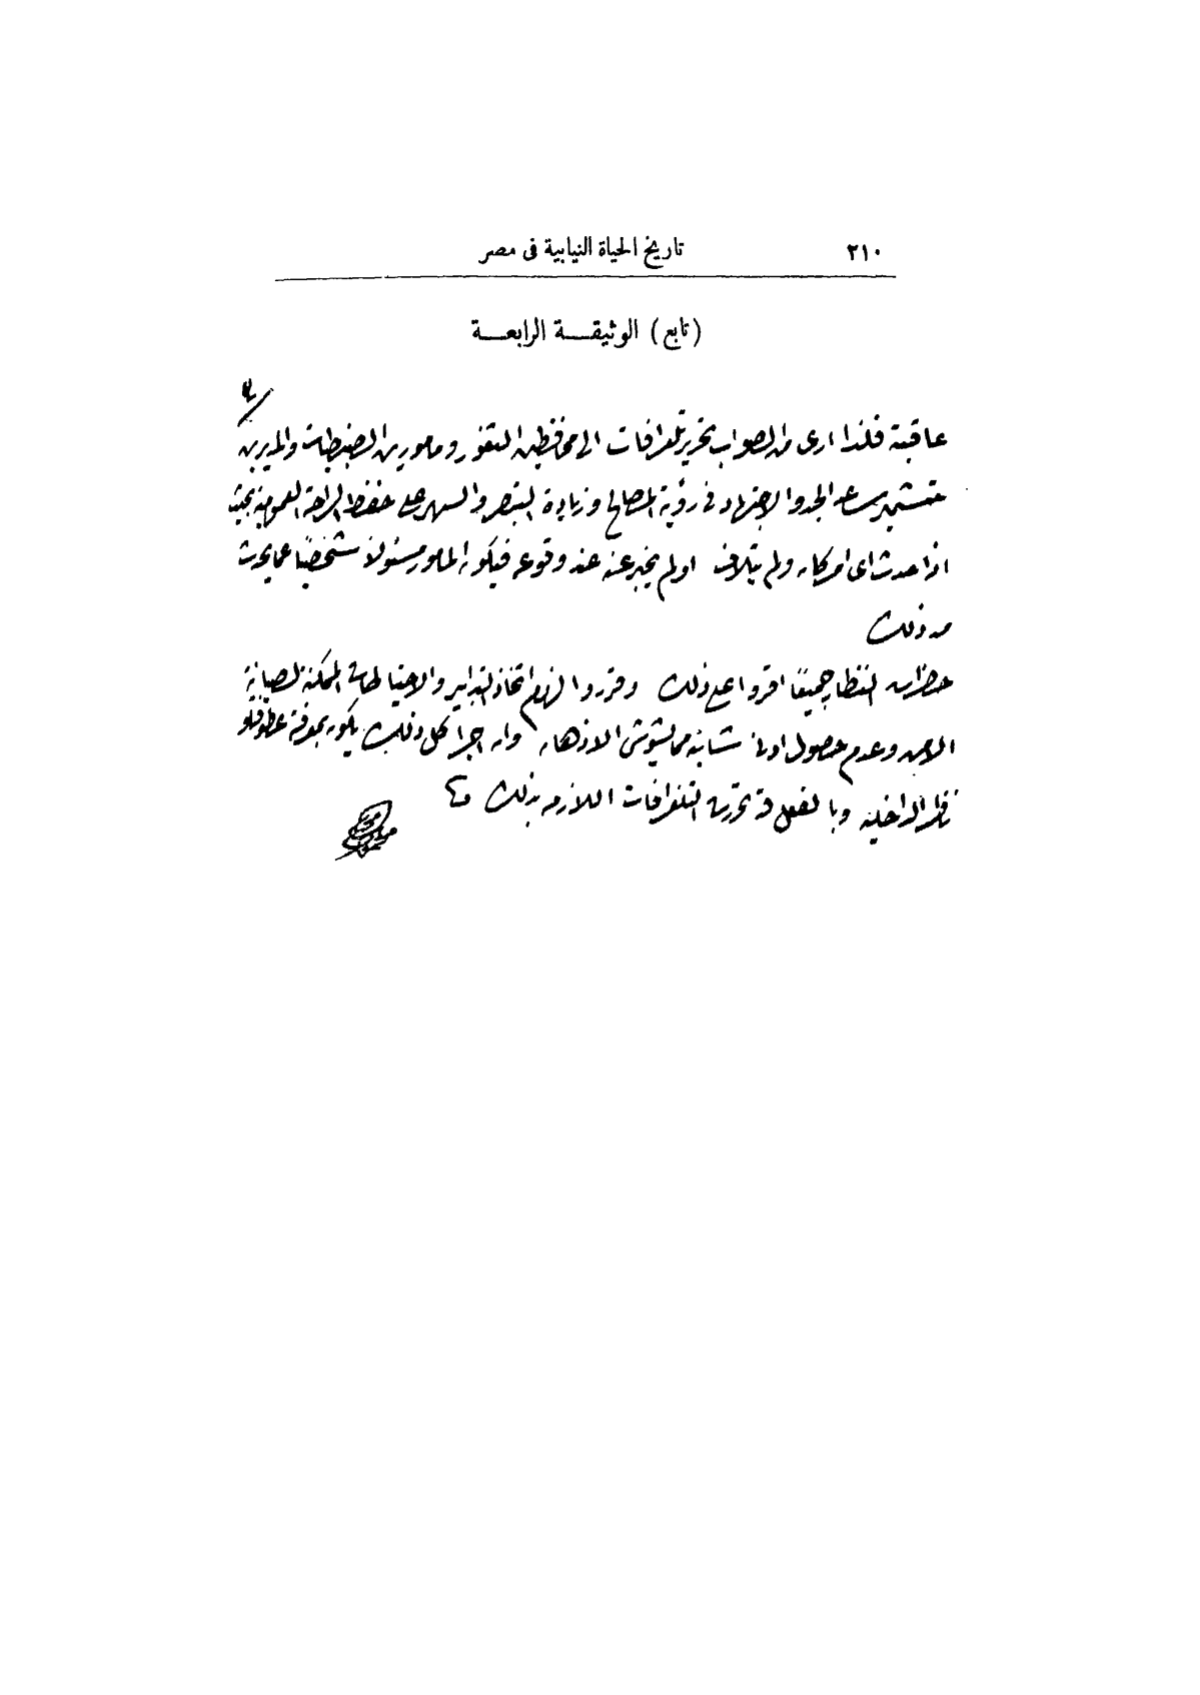 ٢١٠
تاريخ الحياة النيابية فى مصر
(تابع) الوثيقــة الرابعــة
عاقبة فلذا ارى من الصواب تحرير تلغرافات الى محافظين الثغور ومامورين الضبطيات والمديرين
على الجد والاجتهاد فى رؤية المصالح وزيادة التبصر والسهر على حفظ الراحة العمومية بحيث
اذا حدث اى امر كان ولم يتلاف اولم يخبر عنه عند وقوعه فيكون المامور مسئولا شخصيا عما يحدث
من ذلك
حضرات النظار جميعا اقروا على ذلك وقرروا لزوم اتخاذ التدابير والاحتياطات الممكنة لصيانة
الامن وعدم حصول ادنا شائبه مما يشوش الاذهان وان اجرا كل ذلك يكون بمعرفة عطوفتلو
ناظر الداخليه وبالفعل قد تحررت التلغرافات اللازمه بذلك